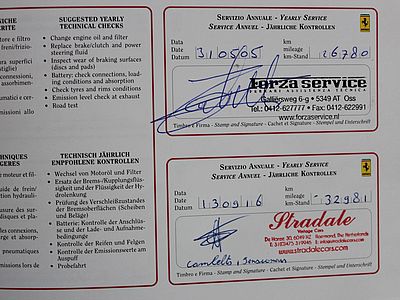 SUGGESTED YEARLY
TECHNICAL CHECKS
• Change engine oil and filter
• Replace brake/clutch and power
steering fluid
• Inspect wear of braking surfaces
(discs and pads)
• Battery: check connections, load-
ing conditions and absorption
• Check tyres and rims conditions
• Emission level check at exhaust
• Road test
SERVIZIO ANNUALE - YEARLY SERVICE
SERVICE ANNUEL - JÄHRLICHE KONTROLLEN
Data
Date
Datum
31/05/05
km
mileage
km-Stand
26780
forza service
FERRARI ASSISTENZA TECNICA
Galliërsweg 6-g • 5349 AT Oss
Tel.: 0412-627777 • Fax: 0412-622991
www.forzaservice.nl
Timbro e Firma - Stamp and Signature - Cachet et Signature - Stempel und Unterschrift
TECHNISCH JÄHRLICH
EMPFOHLENE KONTROLLEN
• Wechsel von Motoröl und Filter
• Ersatz der Brems-/Kupplungsflüs-
sigkeit und der Flüssigkeit der Hy-
drolenkung
• Prüfung des Verschleißzustandes
der Bremsoberflächen (Scheiben
und Beläge)
• Batterie: Kontrolle der Anschlüs-
se und der Lade- und Aufnahme-
bedingungen
• Kontrolle der Reifen und Felgen
• Kontrolle der Emissionswerte am
Auspuff
• Probefahrt
SERVIZIO ANNUALE - YEARLY SERVICE
SERVICE ANNUEL - JÄHRLICHE KONTROLLEN
Data
Date
Datum
130916
km
mileage
km-Stand
32981
Stradale
Vintage Cars
Roermond, The Netherlands
www.stradalecars.com
Timbro e Firma - Stamp and Signature - Cachet et Signature - Stempel und Unterschrift